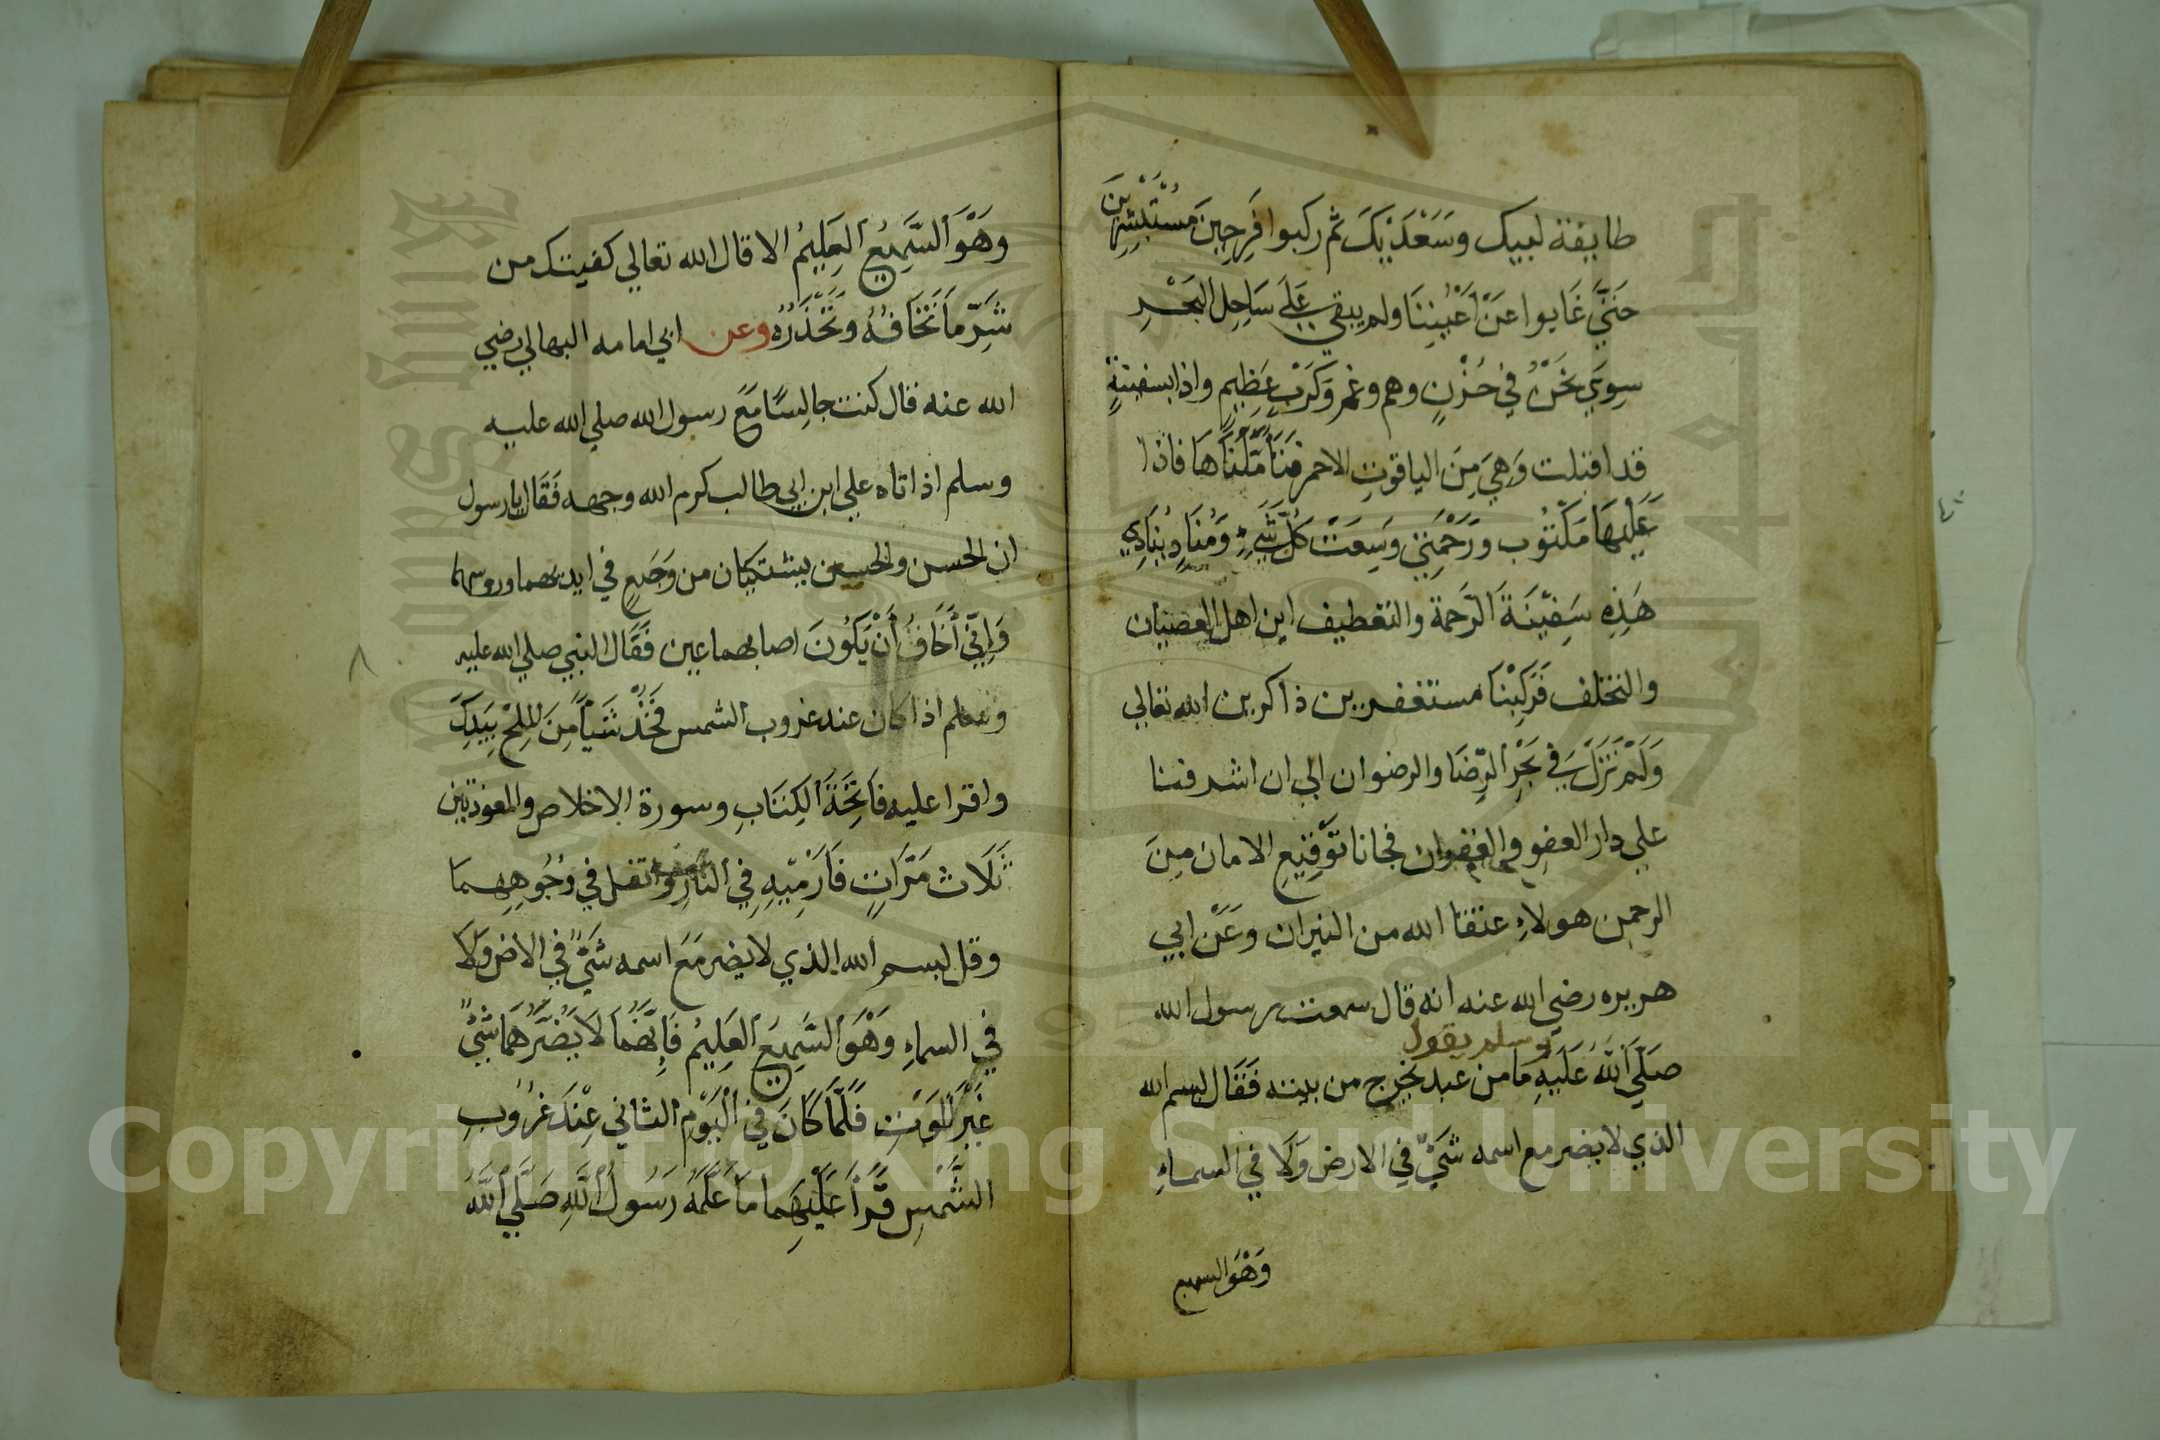 طايفة لبيك وسَعْدَيْكَ ثم ركبوا فَرِحِينَ مُسْتَبْشِرِينَ
حَتَّي غَابوا عَنْ أعْيُنِنَا ولم يبقي عَلَي سَاحِلِ البَحْرِ
سِوَي نَحْنُ في حُزْنٍ وهم وغمر وَكَرْبٍ عَظِيمٍ واذا بسفينةٍ
قد اقبلت وَهِيَ مِنَ الياقوتِ الاحمر فَتَأَمَّلْنَاهَا فاذا
عَلَيْهَا مَكْتُوب ورَحْمَتِي وَسِعَتْ كُلَّ شَيْءٍ وَمُنَادٍ يُنَادِي
هَذِهِ سَفِيْنَةَ الرَّحمة والتعطيف اين اهل العصيان
والتخلف فَرَكِبْنَا مستغفرين ذاكرين الله تعالي
وَلَمْ نَزَلْ في بَحْرِ الرِّضَا والرضوان الي ان اشرفنا
علي دار العفو والغفران فجانا تَوْقِيْعِ الامان مِنَ
الرحمن هولاءِ عتقا الله من النيران وَعَنْ ابي
هريره رضي الله عنه انه قال سمعت رسول الله
وسلم يقول
صَلَّي اللَّهُ عَلَيْهِ مَا من عبد يخرج من بيته فَقَال بسم الله
الذي لا يضر مع اسمه شَيْءٌ فِي الارض وَلَا في السماءِ
وَهْوَ السميع
وَهْوَ السَّمِيعُ العَلِيمُ الا قال الله تعالي كفيتك من
شَرِّ مَا تَخَافُهُ وتَحْذَرُهُ وعن ابي امامه البهالي رضي
الله عنه قال كنت جالِسًا مَعَ رسول الله صلي الله عليه
وسلم اذا تاه علي ابن ابي طالب كرم الله وجهه فَقَال يا رسول
ان الحسن والحسين يشتكيان من وَجَعٍ في ايديهما وروسهما
وَإِنِّي أَخَافُ أَنْ يَكُونَ اصابهما عين فَقَال النبي صلي الله عليه
وسلم اذا كان عند غروب الشمس فَخُذْ شَيْأً مِنَ المِلْحِ بِيَدِكَ
واقرا عليه فَاتِحَةَ الكِتَابِ وسورة الاخلاص والمعوذتين
ثَلَاث مَرَّاتٍ فَارْمِيْهِ فِي النار واتفل في وُجُوهِهِمَا
وقل بسم الله الذي لا يضر مَعَ اسمه شَيْءٌ في الارض وَلَا
في السماءِ وَهْوَ السَّمِيعُ العَلِيمُ فَإِنَّهُمَا لَا يَضُرُّهُمَا شَيْءٌ
غَيْرَ المَوْتِ فَلَمَّا كَانَ فِي الْيَوْمِ الثاني عِنْدَ غرُوبِ
الشَّمْسِ قَرَأَ عَلَيْهِمَا مَا عَلَّمَهُ رَسُولُ اللَّهِ صَلَّي اللَّهُ
Copyright © King Saud University